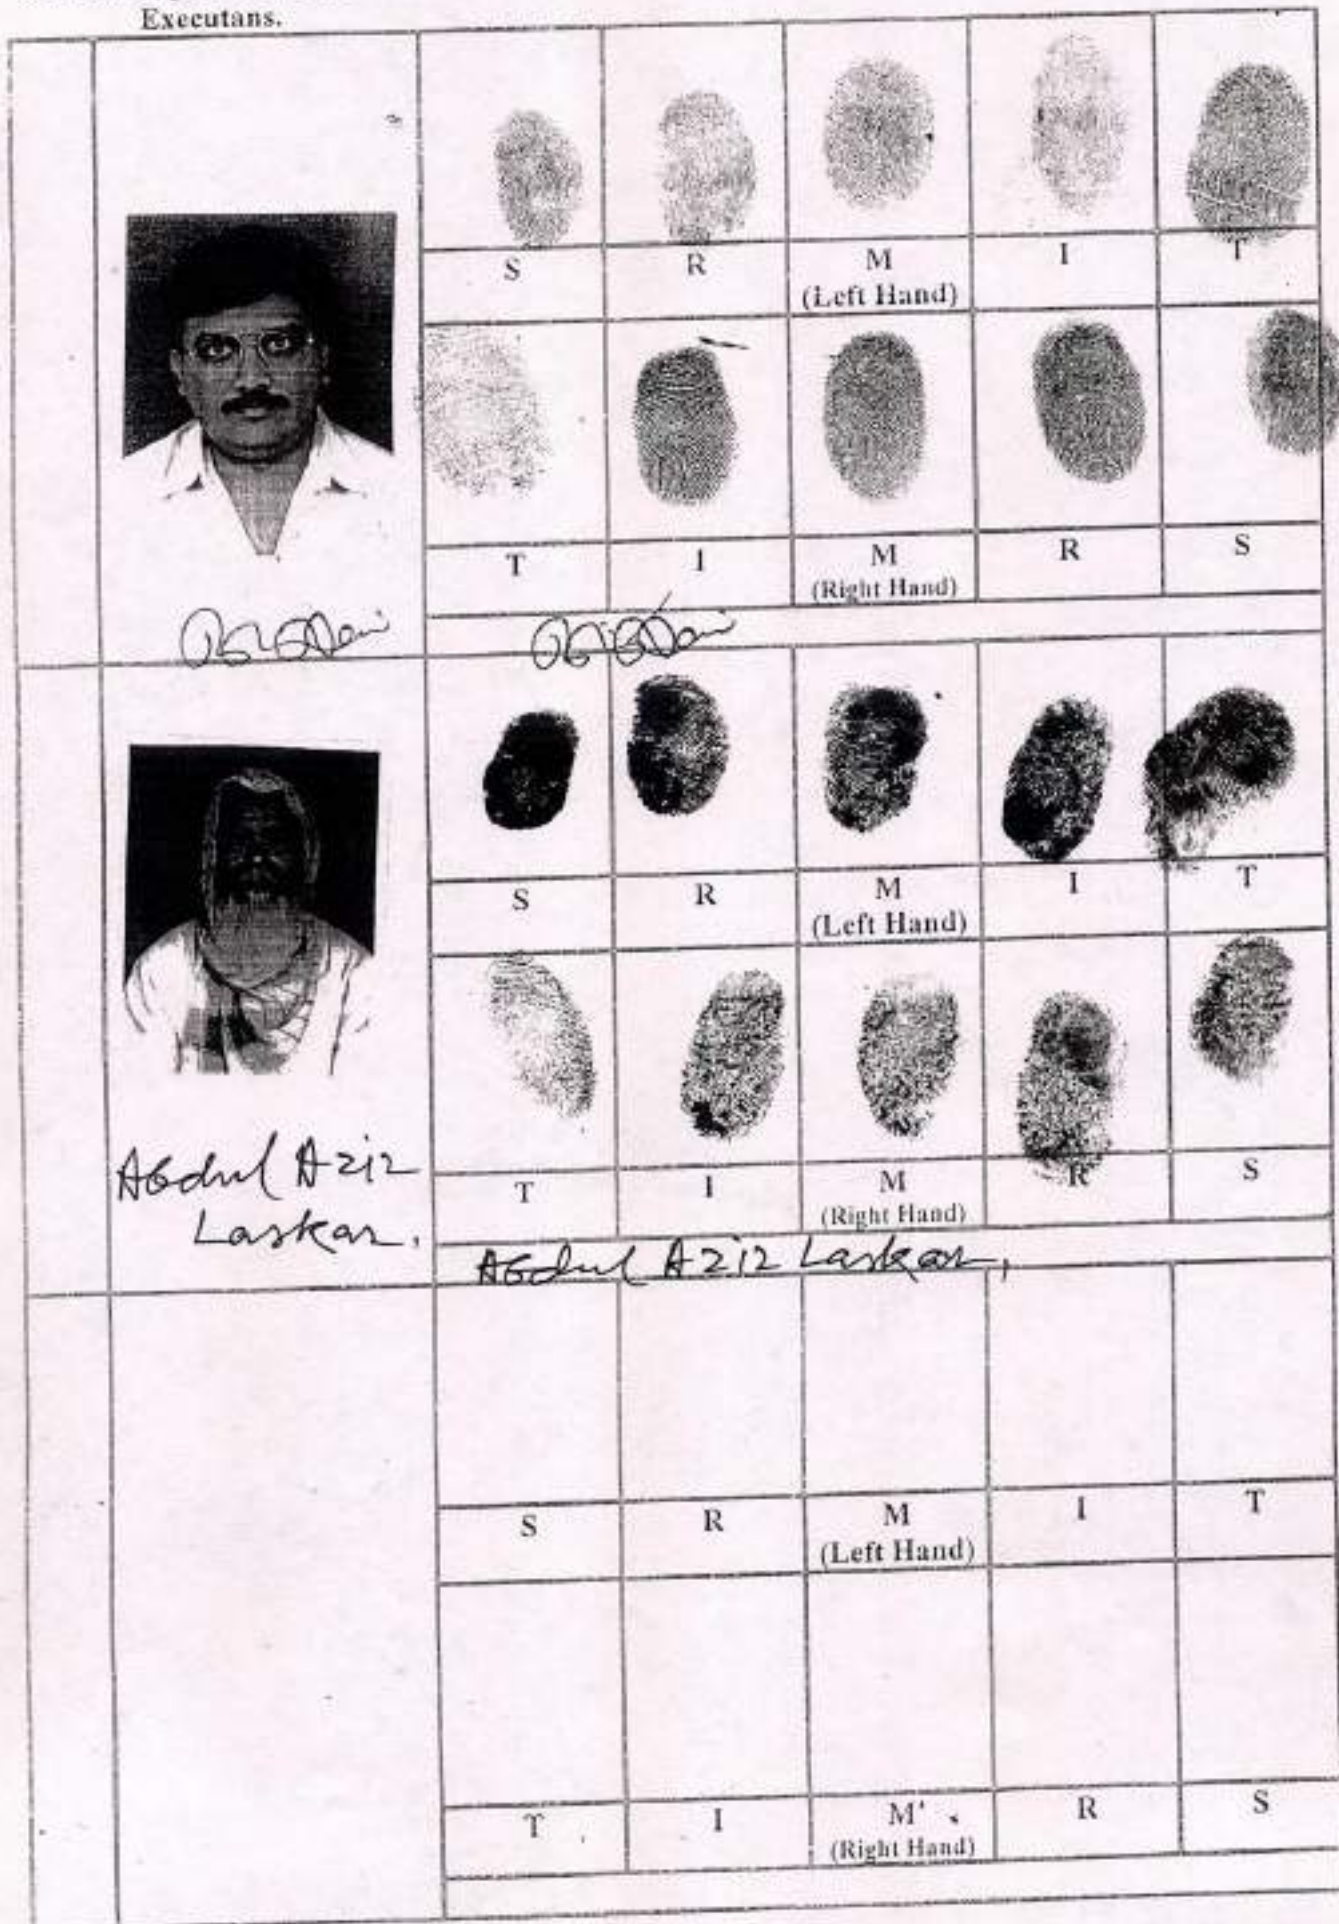 Executans.
S R M I T
(Left Hand)
T I M R S
(Right Hand)
S R M I T
(Left Hand)
T I M R S
(Right Hand)
Abdul Aziz
Laskar.
Abdul Aziz Laskar,
S R M I T
(Left Hand)
T I M R S
(Right Hand)